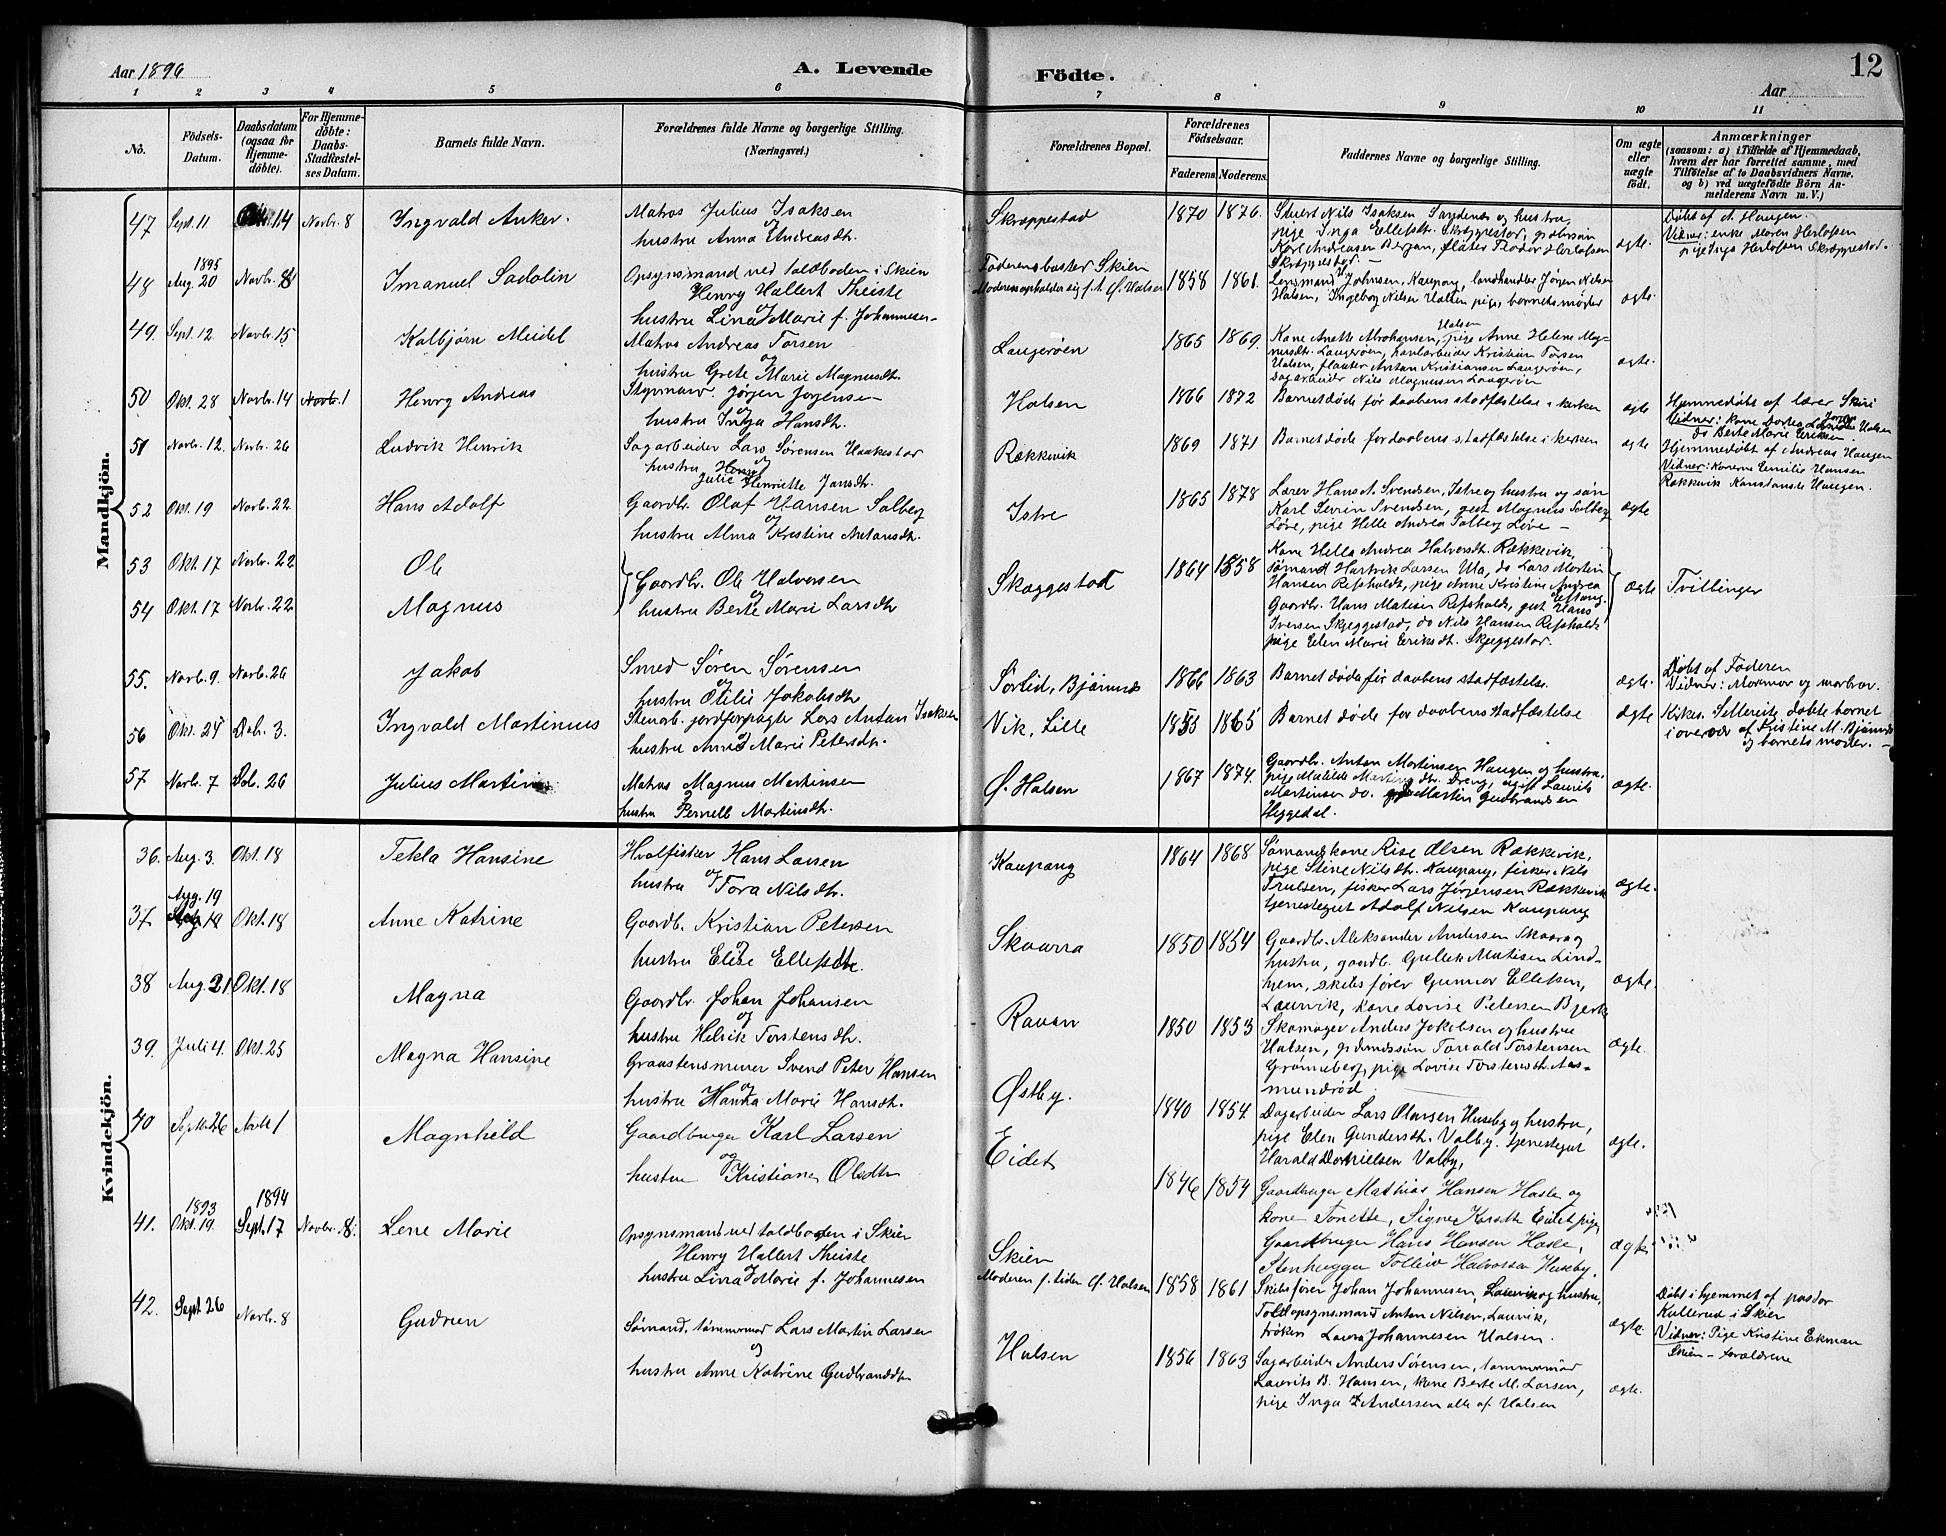 Aar 1896
A. Levende
Födte.
12
Aar
1 2 3 4 5 6 7 8 9 10 11
No.
Födsels-Datum.
Daabsdatum (ogsaa for Hjemme-döbte).
For Hjemme-döbte: Daabs-Stadfæstel-ses Datum.
Barnets fulde Navn.
Forældrenes fulde Navne og borgerlige Stilling. (Næringsvei.)
Forældrenes Bopæl.
Forældrenes Födselsaar.
Faderens. Moderens.
Faddernes Navne og borgerlige Stilling.
Om ægte eller uægte födt.
Anmærkninger
(saasom: a) i Tilfælde af Hjemmedaab,
hvem der har forrettet samme, med
Tilföielse af to Daabsvidners Navne.
og b) ved uægtefödte Börn An-
melderens Navn m. V.)
Mandkjön.
47 Sept. 11 14 Novbr. 8 Ingvald Anker.
Matros Julius Isaksen
og
hustru Anna Andreasdtr.
Skræppestad 1870 1876.
Karl Andreasen Bergan,
ægte.
Døbt af A. Haugen.
Vidner: enke Maren Herlofsen
pige Inga Herlofsen Skræppestad.
48 1895 Aug. 20 Novbr. 8 Imanuel Sadolin
Opsynsmand ved toldboden i Skien
Henry Hallert Theiste
og
hustru Lina Marie f. Johannesen
Faderens bosted Skien
Moderen opholder sig f. t. Ø. Halsen
1858 1861.
Lensmand Johnsen, Kaupang, landhandler Jørgen Nilsen
Halsen, Ingeborg Nilsen Halsen pige, barnets moder
ægte.
49. Sept. 12 Novbr. 15 Kolbjørn Meidel
Matros Andreas Torsen
og
hustru Grete Marie Magnusdtr.
Laugerøen 1865 1869.
Halsen
Kone Anette Abrahamsen, pige Anne Helene Mag-
nusdtr. Laugerøen, havnarbeider Kristian Torsen
Halsen, Anton Kristiansen Laugerøen,
sagarbeider Nils Magnusen Laugerøen
ægte.
50 Okt. 28 Novbr. 14 Novbr. 1 Henry Andreas
Styrmand Jørgen Jørgensen
og
hustru Inga Hansdtr.
Halsen 1866 1872
Barnet døde før daabens stadfæstelse i kirken
ægte
Hjemmedøbt af lærer Skiri
Vidner: kone Dortea Halsen
do Berte Marie Eriksen.
51 Novbr. 12. Novbr. 26 Ludvik Henrik
Sagarbeider Lars Sørensen Haakestad
og
hustru Julie Henriette Jansdtr.
Rækkevik 1869 1871
Barnet døde før daabens stadfæstelse i kirken
ægte
Hjemmedøbt af Andreas Haugen
Vidner: Konerne Emilie Hansen
Rækkevik Konstanse Haugen.
52 Okt. 19 Novb. 22 Hans Adolf
Gaardbr. Olaf Hansen Solberg
og
hustru Alma Kristine Antonsdtr.
Istre 1865 1878
Lærer Hans A. Svendsen, Istre og hustru og søn
Karl Severin Svendsen, gut Magnus Solberg
Løve, pige Helle Andrea Solberg Løve —
ægte
53 Okt. 17 Novbr. 22 Ole
54 Okt. 17 Novbr. 22 Magnus
Gaardbr. Ole Halvorsen
og
hustru Berte Marie Larsdtr
Skæggestad 1864 1858
Kone Hella Andrea Halvorsdtr. Rækkevik,
sømand Hartvik Larsen Ula, do Lars Martin
Hansen Refsholdt, pige Anne Kristine Andrea
Gaardbr. Hans Matisen Refsholdt, gut Hans
Iversen Skjeggestad, do Nils Hansen Refsholdt
pige Elen Marie Eriksdtr. Skjeggestad.
ægte Tvillinger
55. Novb. 9. Novbr. 26 Jakob
Smed Søren Sørensen
og
hustru Otilie Jakobsdtr
Sørlid, Bjønnes 1866 1863
Barnet døde før daabens stadfæstelse.
ægte.
Døbt af Faderen
Vidner: Mormor og morbror.
56 Okt. 25 Dcbr. 3. Ingvald Martinius
Stenarb. jordforpagter Lars Anton Isaksen
og
hustru Anne Marie Petersdtr.
Vik, Lille 1853 1865
Barnet døde før daabens stadfæstelse
ægte
døbte barnet
i overvær af Kristine M. Bjønnes
og barnets moder. —
57 Novbr. 7 Dcb. 26 Julius Martin
Matros Magnus Martinsen
og
hustru Pernelle Martinsdtr.
Ø. Halsen 1867 1874.
Gaardbr. Anton Mortensen Haugen og hustru,
pige Matilde Dreng, ugift Laurits
Martinsen do. Martin Gudbrandsen
Heggedal.
ægte.
Kvindekjön.
36. Aug. 3. Okt. 18 Tekla Hansine
Hvalfisker Hans Larsen
og
hustru Tora Nilsdtr.
Kaupang 1864 1868
Sømandskone Rise Olsen Rækkevik,
pige Stine Nilsdtr. Kaupang, fisker Nils
Trulsen, fisker Lars Jørgensen Rækkevik
tjenestegut Adolf Nilsen Kaupang
ægte.
37. Aug. 19 Okt. 18 Anne Katrine
Gaardb. Kristian Petersen
og
hustru Elise Ellefsdtr.
Skaarra 1850 1854
Gaardbr. Aleksander Andersen Skaara og
hustru, gaardb. Gullik Matisen Lind-
hjem, skibsfører Gunnar Ellefsen,
Laurvik, kone Lovise Petersen Bjerk
ægte.
38 Aug. 21 Okt. 18 Magna
Gaardbr. Johan Johansen
og
hustru Helvik Torstensdtr.
Rauan 1850 1853
Skomager Anders Jakobsen og hustru
Halsen, Torvald Torstensen
Grønneberg, pige Lovise Torstensdtr. Aas-
mundrød
ægte.
39. Juli 4. Okt. 25 Magna Hansine
Graastensmurer Svend Peter Hansen
og
hustru Hanna Marie Hansdtr.
Østby. 1840 1854.
Dagarbeider Lars Olavsen Huseby og hustru,
pige Elen Gundersdtr. Valby. tjenestegut
Harald Danielsen Valby,
ægte.
40 Sept. 26 Novbr 1 Magnhild
Gaardbruger Karl Larsen
og
hustru Kristiane Olsdtr
Eidet 1846 1854
Gaardbruger Mathias Hansen Hasle og
kone Tonette, Signe Karsdtr Eidet pige
Gaardbruger Hans Hansen Hasle,
Stenhugger Tollev Halvorsen Huseby.
ægte
41. 1893 Okt. 19. 1894 Sept. 17 Novbr. 8. Lene Marie
Opsynsmand ved toldboden i Skien
Henry Hallert Theiste
og
hustru Lina Marie f. Johannesen
Skien
Moderen f. tiden Ø. Halsen 1858 1861
Skibsfører Johan Johannesen, Laurvik og hustru,
Toldopsynsmand Anton Nilsen, Laurvik,
frøken Laura Johannesen Halsen.
ægte
Døbt i hjemmet af pastor
Kullerud i Skien
Vidner: Pige Kristine Ekman
Skien – forældrene
42. Sept 26 Novbr. 8 Gudrun
Sømand, tømmermand Lars Martin Larsen
og
hustru Anne Katrine Gudbrandsdtr
Halsen 1856 1863
Sagarbeider Anders Sørensen, tømmermand
Laurits B. Hansen, kone Berte M. Larsen,
pige Inga Andersen alle af Halsen
ægte.